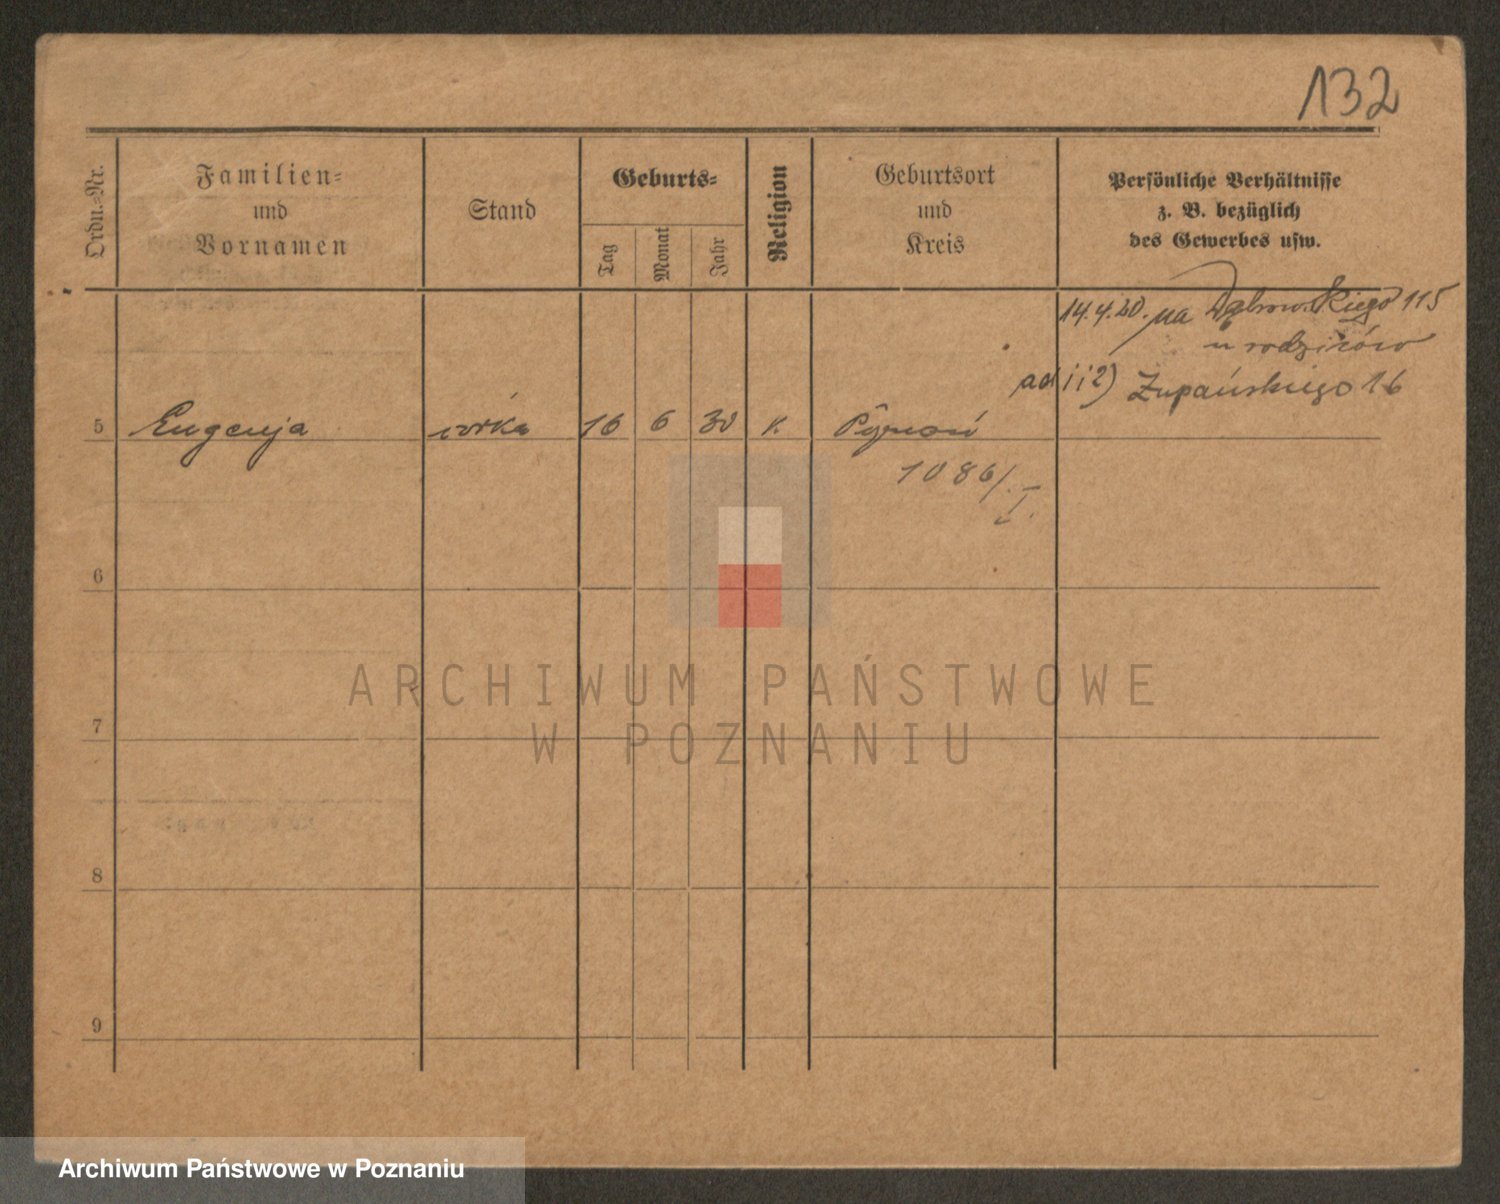 132
Ordn.-Nr.
Familien-
und
Vornamen
Stand
Geburts-
Tag
Monat
Jahr
Religion
Geburtsort
und
Kreis
Persönliche Verhältnisse
z. B. bezüglich
des Gewerbes usw.
14.4.20. na Dąbrowskiego 115
u rodziców
ad i i 2) Żupańskiego 16
5 Eugenja córka 16 6 30 k. Poznań
1086/I.
6
ARCHIWUM PAŃSTWOWE
W POZNANIU
7
8
9
Archiwum Państwowe w Poznaniu